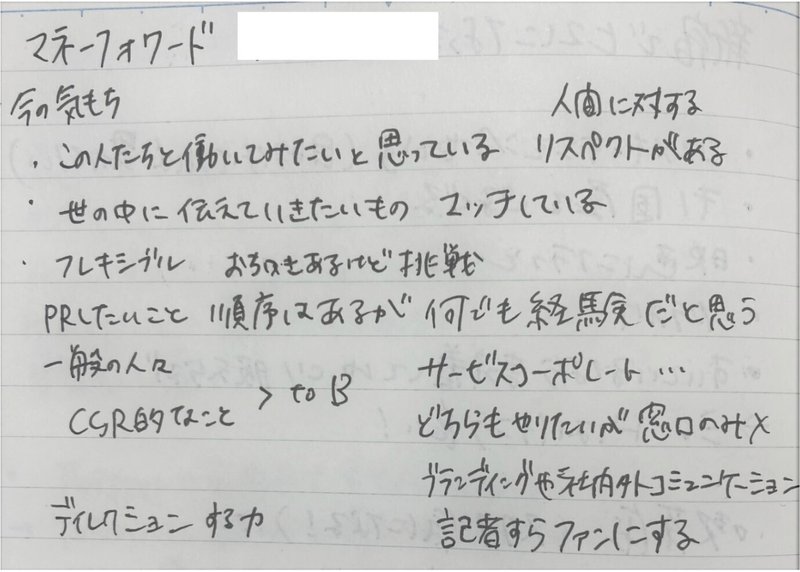 マネーフォワード
今の気もち
人間に対する
・この人たちと働いてみたいと思っている リスペクトがある
・世の中に伝えていきたいもの マッチしている
・フレキシブル おちつきあるけど挑戦
PRしたいこと 順序はあるが 何でも経験だと思う
一般の人々 > to B サービスコーポレート…
CSR的なこと どちらもやりたいが窓口のみ×
ブランディングや社内外コミュニケーション
ディレクションする力 記者すらファンにする